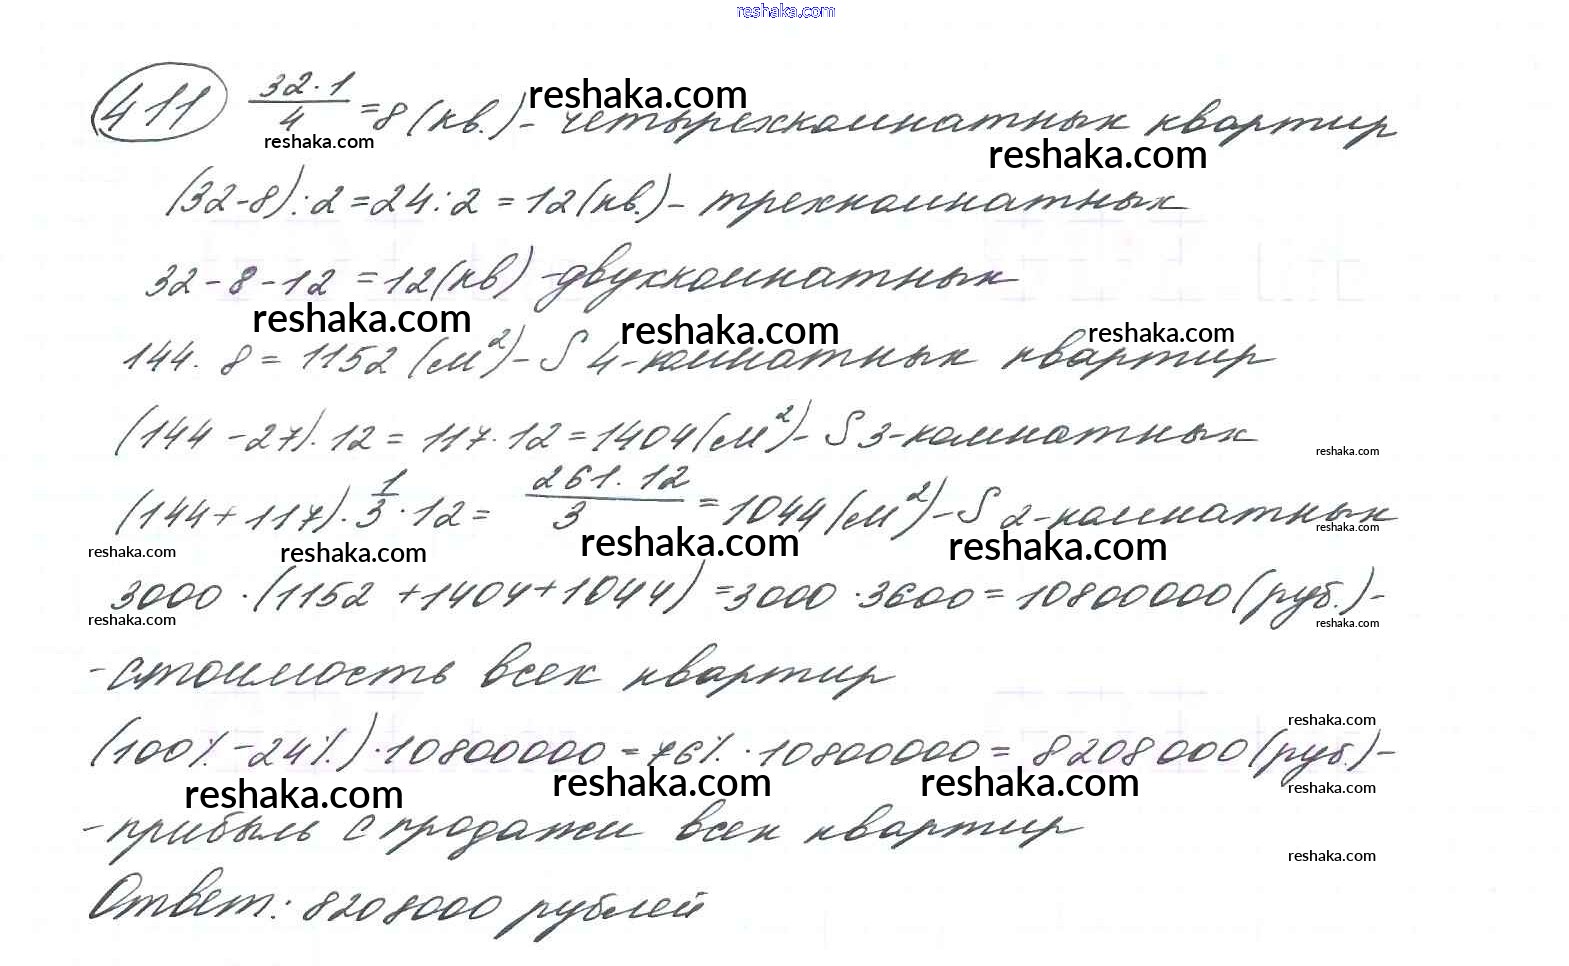 reshaka.com
411 32·1/4 = 8 (кв.) – четырехкомнатных квартир
reshaka.com
reshaka.com reshaka.com
(32-8):2=24:2 = 12(кв.) – трехкомнатных
32-8-12 = 12(кв) - двухкомнатных
reshaka.com reshaka.com reshaka.com
144·8= 1152 (см²) – S 4-комнатных квартир
(144-27)·12= 117·12=1404(см²) – S 3-комнатных
reshaka.com
(144+117)·1/3·12= 261·12/3 = 1044 (см²) – S 2-комнатных
reshaka.com reshaka.com reshaka.com reshaka.com reshaka.com
3000·(1152+1404+1044) =3000·3600= 10800000(руб.)-
reshaka.com reshaka.com
-стоимость всех квартир
reshaka.com
(100%-24%)·10800000=76%·10800000= 8208000(руб.)-
reshaka.com reshaka.com reshaka.com reshaka.com
-прибыль с продажи всех квартир
reshaka.com
Ответ: 8208000 рублей